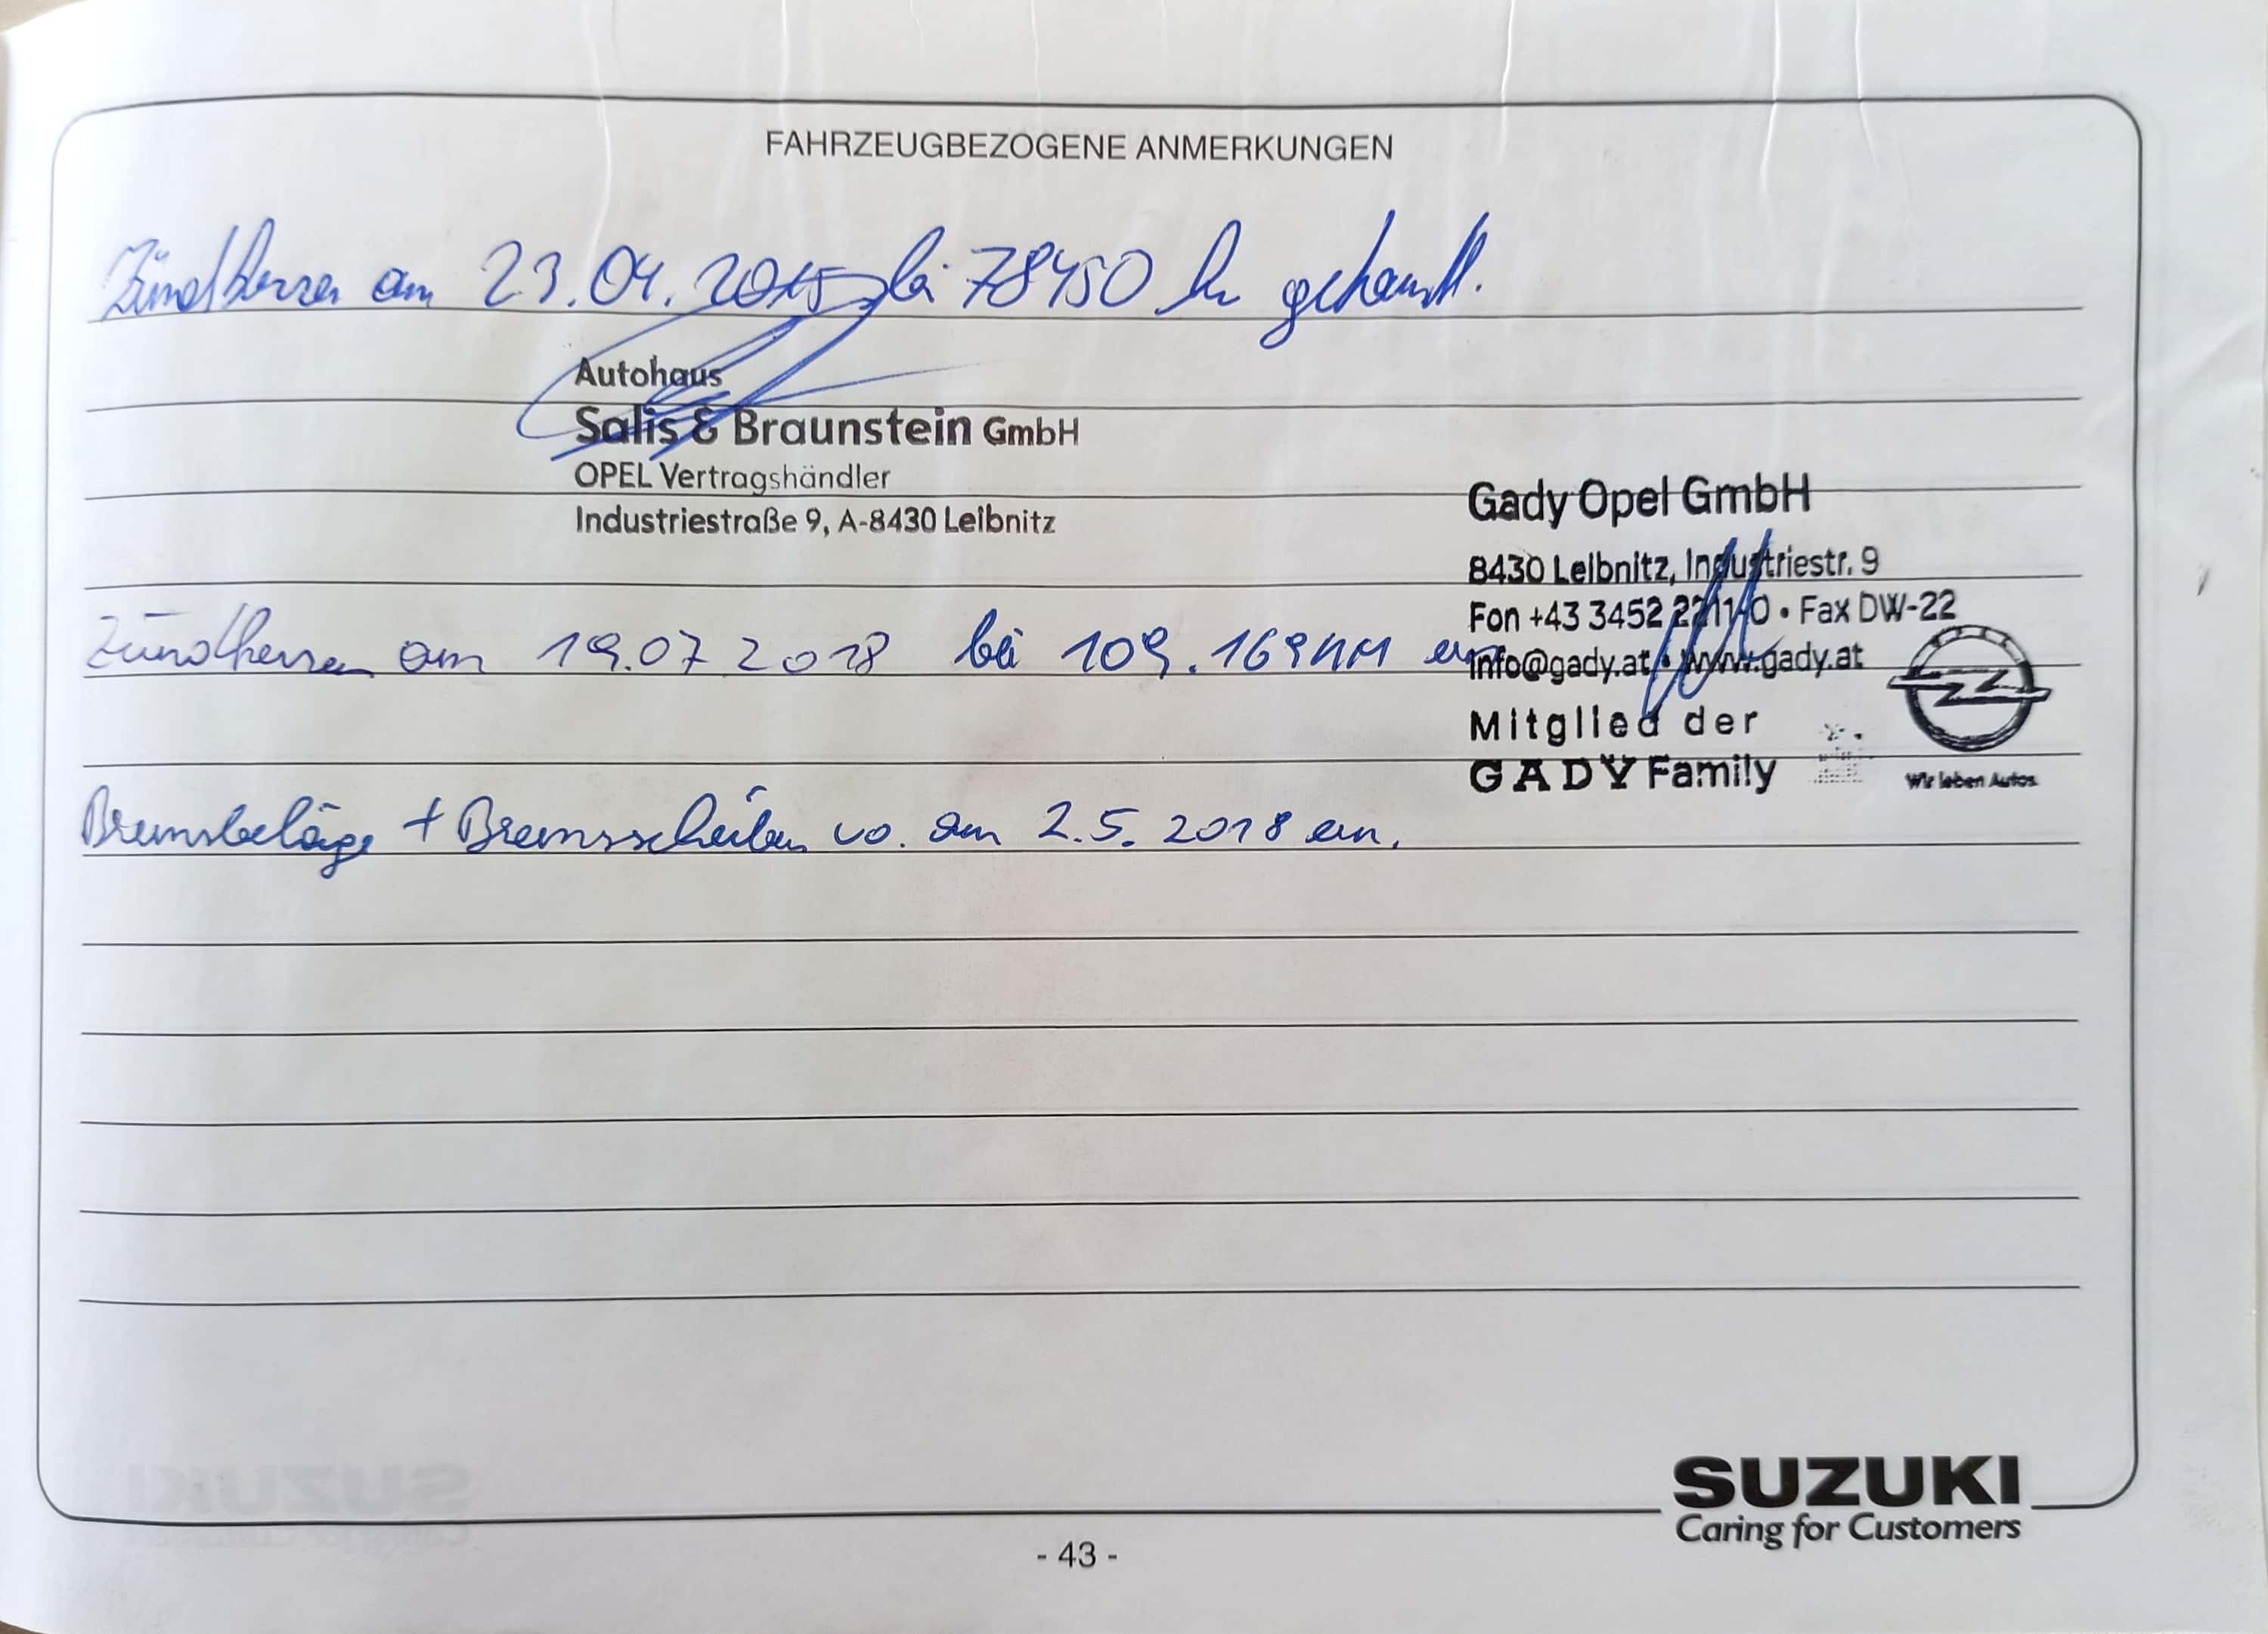 FAHRZEUGBEZOGENE ANMERKUNGEN
Zündkerzen am 23.04.2015 bei 78450 km getauscht.
Autohaus
Salis & Braunstein GmbH
OPEL Vertragshändler
Industriestraße 9, A-8430 Leibnitz
Gady Opel GmbH
8430 Leibnitz, Industriestr. 9
Fon +43 3452 2211-0 • Fax DW-22
Zündkerzen am 19.07 2018 bei 109.169 KM ern
info@gady.at • www.gady.at
Mitglied der
GADY Family
Wir leben Autos.
Bremsbeläge + Bremsscheiben vo. am 2.5. 2018 ern.
SUZUKI
Caring for Customers
- 43 -